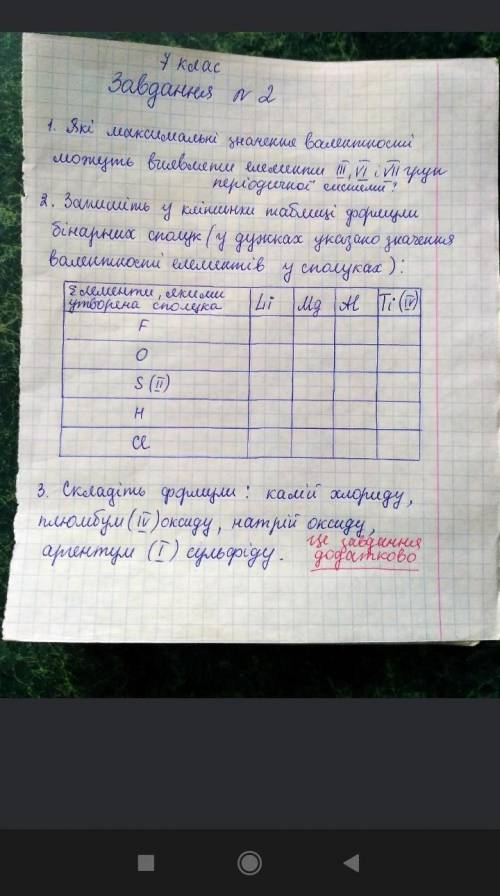 7 клас
Завдання № 2
1. Які максимальні значення валентності
можуть виявляти елементи III, VI і VII груп
періодичної системи?
2. Запишіть у клітинки таблиці формули
бінарних сполук (у дужках указано значення
валентності елементів у сполуках):
Елементи, якими Li Mg Al Ti (IV)
утворена сполука
F
O
S (II)
H
Cl
3. Складіть формули: калій хлориду,
плюмбум (IV) оксиду, натрій оксиду,
аргентум (I) сульфіду. це завдання
додатково